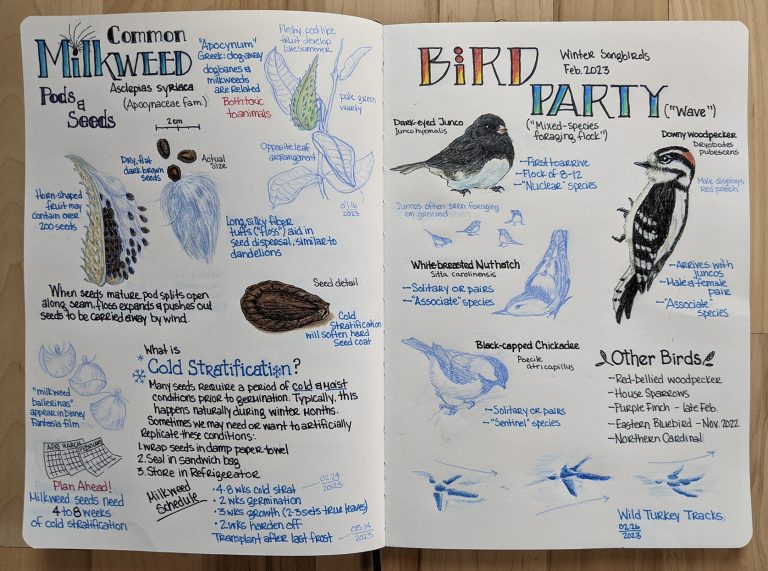 Common
Milkweed
Asclepias syriaca
(Apocynaceae fam.)
Pods &
Seeds
"Apocynum"
Greek: dog-away
dogbanes &
milkweeds
are related
Both toxic
to animals
Fleshy, pod-like
fruit develop
late summer
pale green
warty
Opposite leaf
arrangement
2023
2 cm
Dry, flat
dark brown
seeds
Actual
Size
Horn-shaped
fruit may
contain over
200 seeds
Long, silky fiber
tufts ("floss") aid in
seed dispersal, similar to
dandelions
When seeds mature, pod splits open
along seam, floss expands & pushes out
seeds to be carried away by wind.
Seed detail
Cold
Stratification
will soften hard
Seed coat
"milkweed
ballerinas"
appear in Disney
Fantasia film
What is
Cold Stratification?
Many seeds require a period of cold & moist
conditions prior to germination. Typically, this
happens naturally during winter months.
Sometimes we may need or want to artificially
Replicate these conditions:
1. wrap seeds in damp paper towel
2. Seal in sandwich bag
3. Store in Refrigerator
MARCH
Plan Ahead!
Milkweed seeds need
4 to 8 weeks
of cold stratification
Milkweed
Schedule
• 4-8 wks cold strat
• 2 wks germination
• 3 wks growth (2-3 sets true leaves)
• 2 wks harden off
Transplant after last frost
02.24
2023
03.14
2023
BiRD
PARTY
Winter Songbirds
Feb. 2023
("Wave")
("Mixed-species
foraging flock")
Dark-eyed Junco
Junco hyemalis
- First to arrive
- Flock of 8-12
- "Nuclear" species
Juncos often seen foraging
on ground
Downy Woodpecker
Dryobates
pubescens
Male displays
Red patch
- Arrives with
juncos
- Male & female
pair
- "Associate"
species
White-breasted Nuthatch
Sitta carolinensis
- Solitary or pairs
- "Associate" species
Black-capped Chickadee
Poecile
atricapillus
- Solitary or pairs
- "Sentinel" species
Other Birds
- Red-bellied woodpecker
- House Sparrows
- Purple Finch - late Feb.
- Eastern Bluebird - Nov. 2022
- Northern Cardinal
Wild Turkey Tracks
02.26
2023